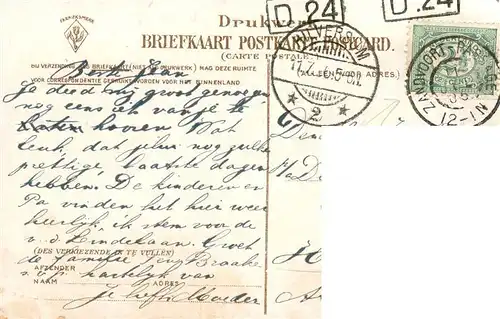 FABRIEKSMERK
Drukwerk
BRIEFKAART POSTKARTE POSTCARD.
(CARTE POSTALE)
D.24
D.24
HILVERSUM
2
ZANDVOORT
12-1N
BIJ VERZENDING ALS BRIEFKAART (NIET DRUKWERK) MAG DEZE RUIMTE
VOOR CORRESPONDENTIE GEBRUIKT WORDEN VOOR HET BINNENLAND
(ALLEEN VOOR ADRES.)
Je deed mij groot genoegen
nog eens iets van je te
laten hooren Wat
leuk dat jelui nog zulke
prettige laatste dagen
hebben. De kinderen en
Pa vinden het hier weer
heerlijk ik stem voor de
v. d. Lindelaan. Groet
(DES VERKIEZENDE IN TE VULLEN)
de familie Braake
AFZENDER
hartelijk van
NAAM ADRES
je liefh Moeder